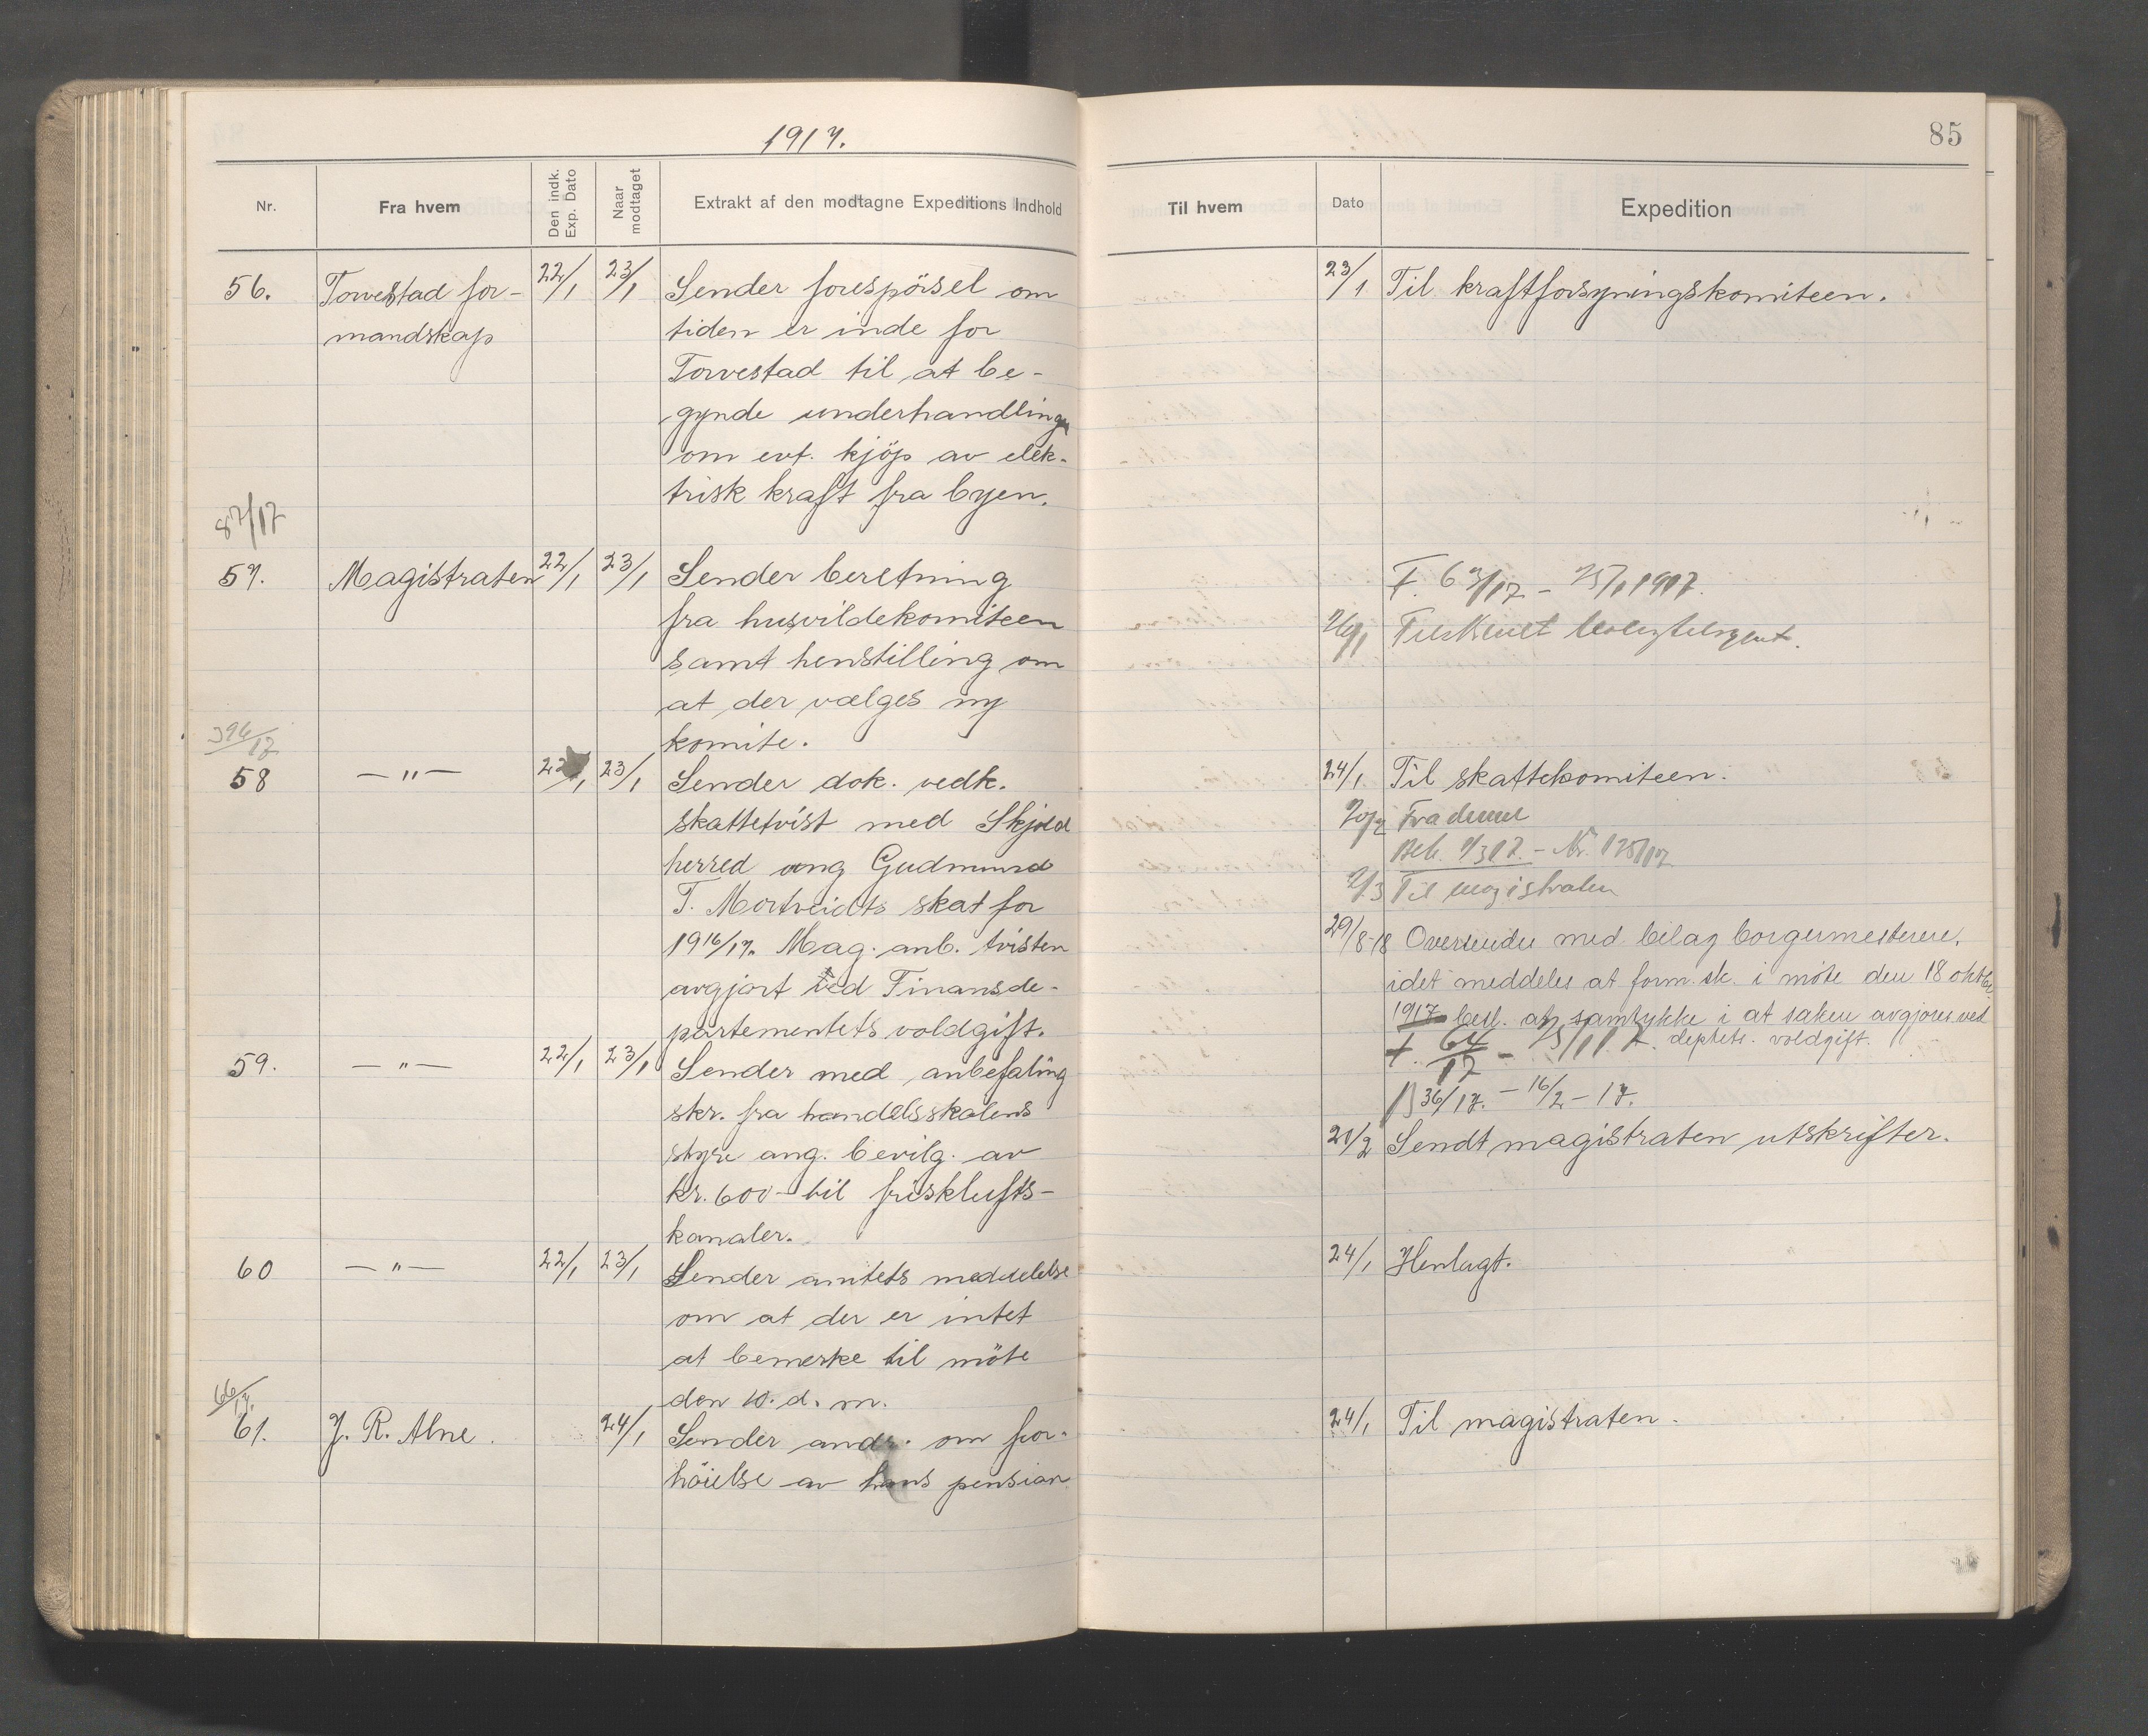 1917.
Nr.
Fra hvem
Den indk. Exp. Dato
Naar modtaget
Extrakt af den modtagne Expeditions Indhold
56.
Torvestad for-
mandskap
22/1
23/1
Sender forespörsel om
tiden er inde for
Torvestad til at be-
gynde underhandlinger
om evt. kjöp av elek-
trisk kraft fra byen.
87/17
57.
Magistraten
22/1
23/1
Sender beretning
fra husvildekomiteen
samt henstilling om
at der vælges ny
komite.
396/17
58
— " —
22/1
23/1
Sender dok. vedk.
skattetvist med Skjold
herred ang Gudmund
T. Mortveidts skat for
1916/17. Mag. anb. tvisten
avgjort ved Finansde-
partementets voldgift.
59.
— " —
22/1
23/1
Sender med anbefaling
skr. fra handelsskolens
styre ang. bevilg. av
kr. 600- til frisklufts-
kanaler.
60
— " —
22/1
23/1
Sender amtets meddelelse
om at der er intet
at bemerke til möte
den 10. d. m.
66/17.
61.
J. R. Alne.
24/1
Sender andr. om for-
höielse av hans pension
85
Til hvem
Dato
Expedition
23/1
Til kraftforsyningskomiteen.
F. 63/17 - 25/1 1917.
Tilskrevet
24/1
Til skattekomiteen.
20/2
Fra denne
Beh. 1/3 17. - Nr. 125/17
2/3
Til magistraten
29/8-18
Oversendes med bilag borgermesteren,
idet meddeles at form.sk. i möte den 18 oktbr.
1917 besl. at samtykke i at saken avgjores ved
deptets. voldgift.
F. 64/17 - 25/1 17.
B 36/17. - 16/2 - 17.
21/2
Sendt magistraten utskrifter.
24/1
Henlagt.
24/1
Til magistraten.